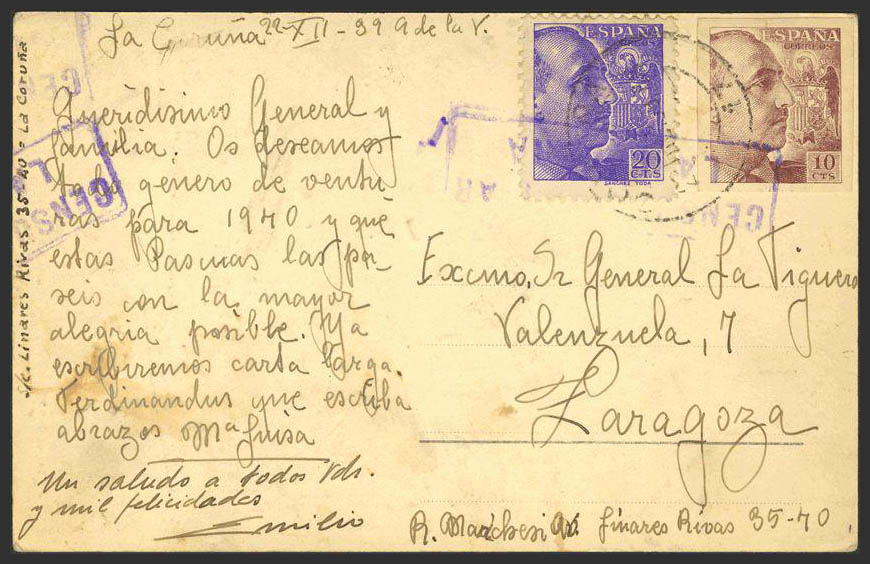 La Coruña 22-XII-39 A de la V.
Queridisimo General y
familia. Os deseamos
todo genero de ventu-
ras para 1940 y que
estas Pascuas las pa-
seis con la mayor
alegria posible. Ya
escribiremos carta larga.
Ferdinandus que escriba
abrazos Mª Luisa
Un saludo a todos Vds.
y mil felicidades
Emilio
S/c. Linares Rivas 35-40 - La Coruña
ESPAÑA
CORREOS
20
CTS
SANCHEZ TODA
ESPAÑA
CORREOS
10
CTS
CENS
CEN
Excmo. Sr General La Figuera
Valenzuela, 7
Zaragoza
R. Marchesi Linares Rivas 35-40